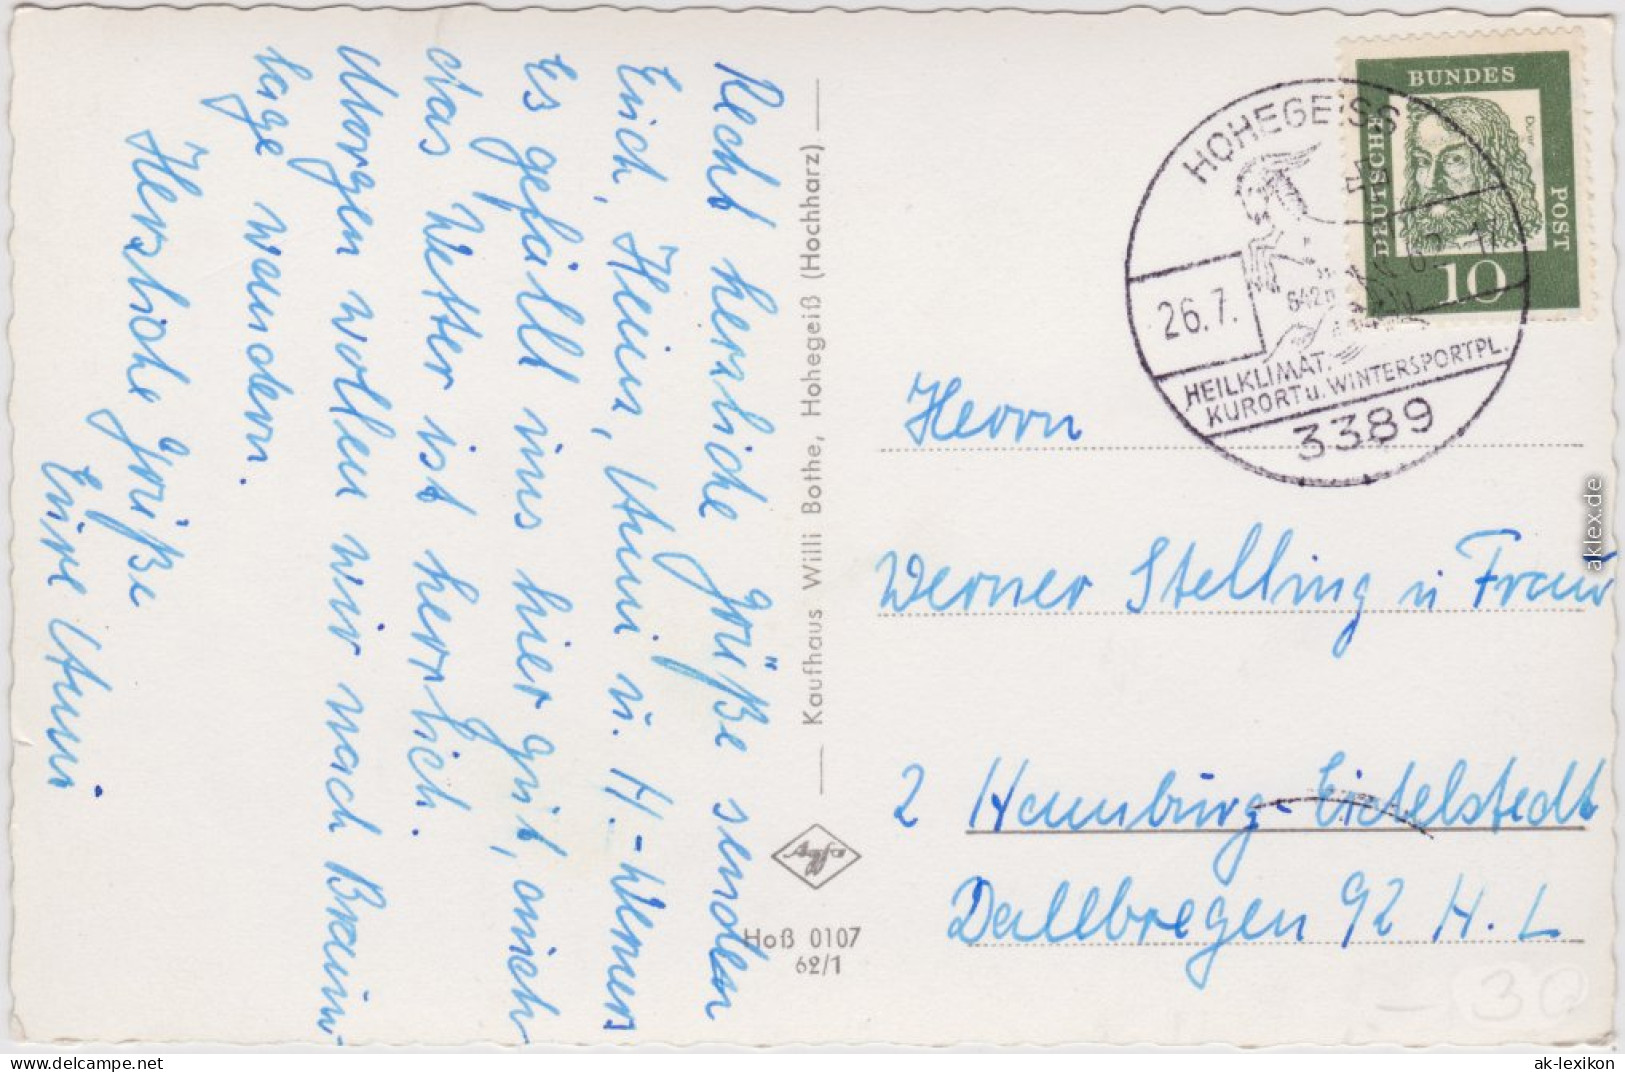 Recht herzliche Grüße senden
Euch, Heinz, Anni u. H.-Werner
Es gefällt uns hier gut, auch
das Wetter ist herrlich.
Morgen wollen wir nach Braun-
lage wandern.
Herzliche Grüße
Eure Anni
Kaufhaus Willi Bothe, Hohegeiß (Hochharz)
Agfa
Hoß 0107
62/1
BUNDES
DEUTSCHE
POST
Dürer
10
HOHEGEISS
26.7.
642m
HEILKLIMAT.
KURORT u. WINTERSPORTPL.
3389
Herrn
Werner Stelling u Frau
2 Hamburg-Eidelstedt
Dallbregen 92 H. L
30
aklex.de
www.delcampe.net
ak-lexikon